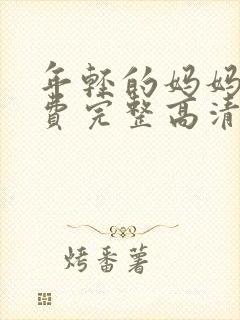 年轻的妈妈
费完整高清
烤番薯